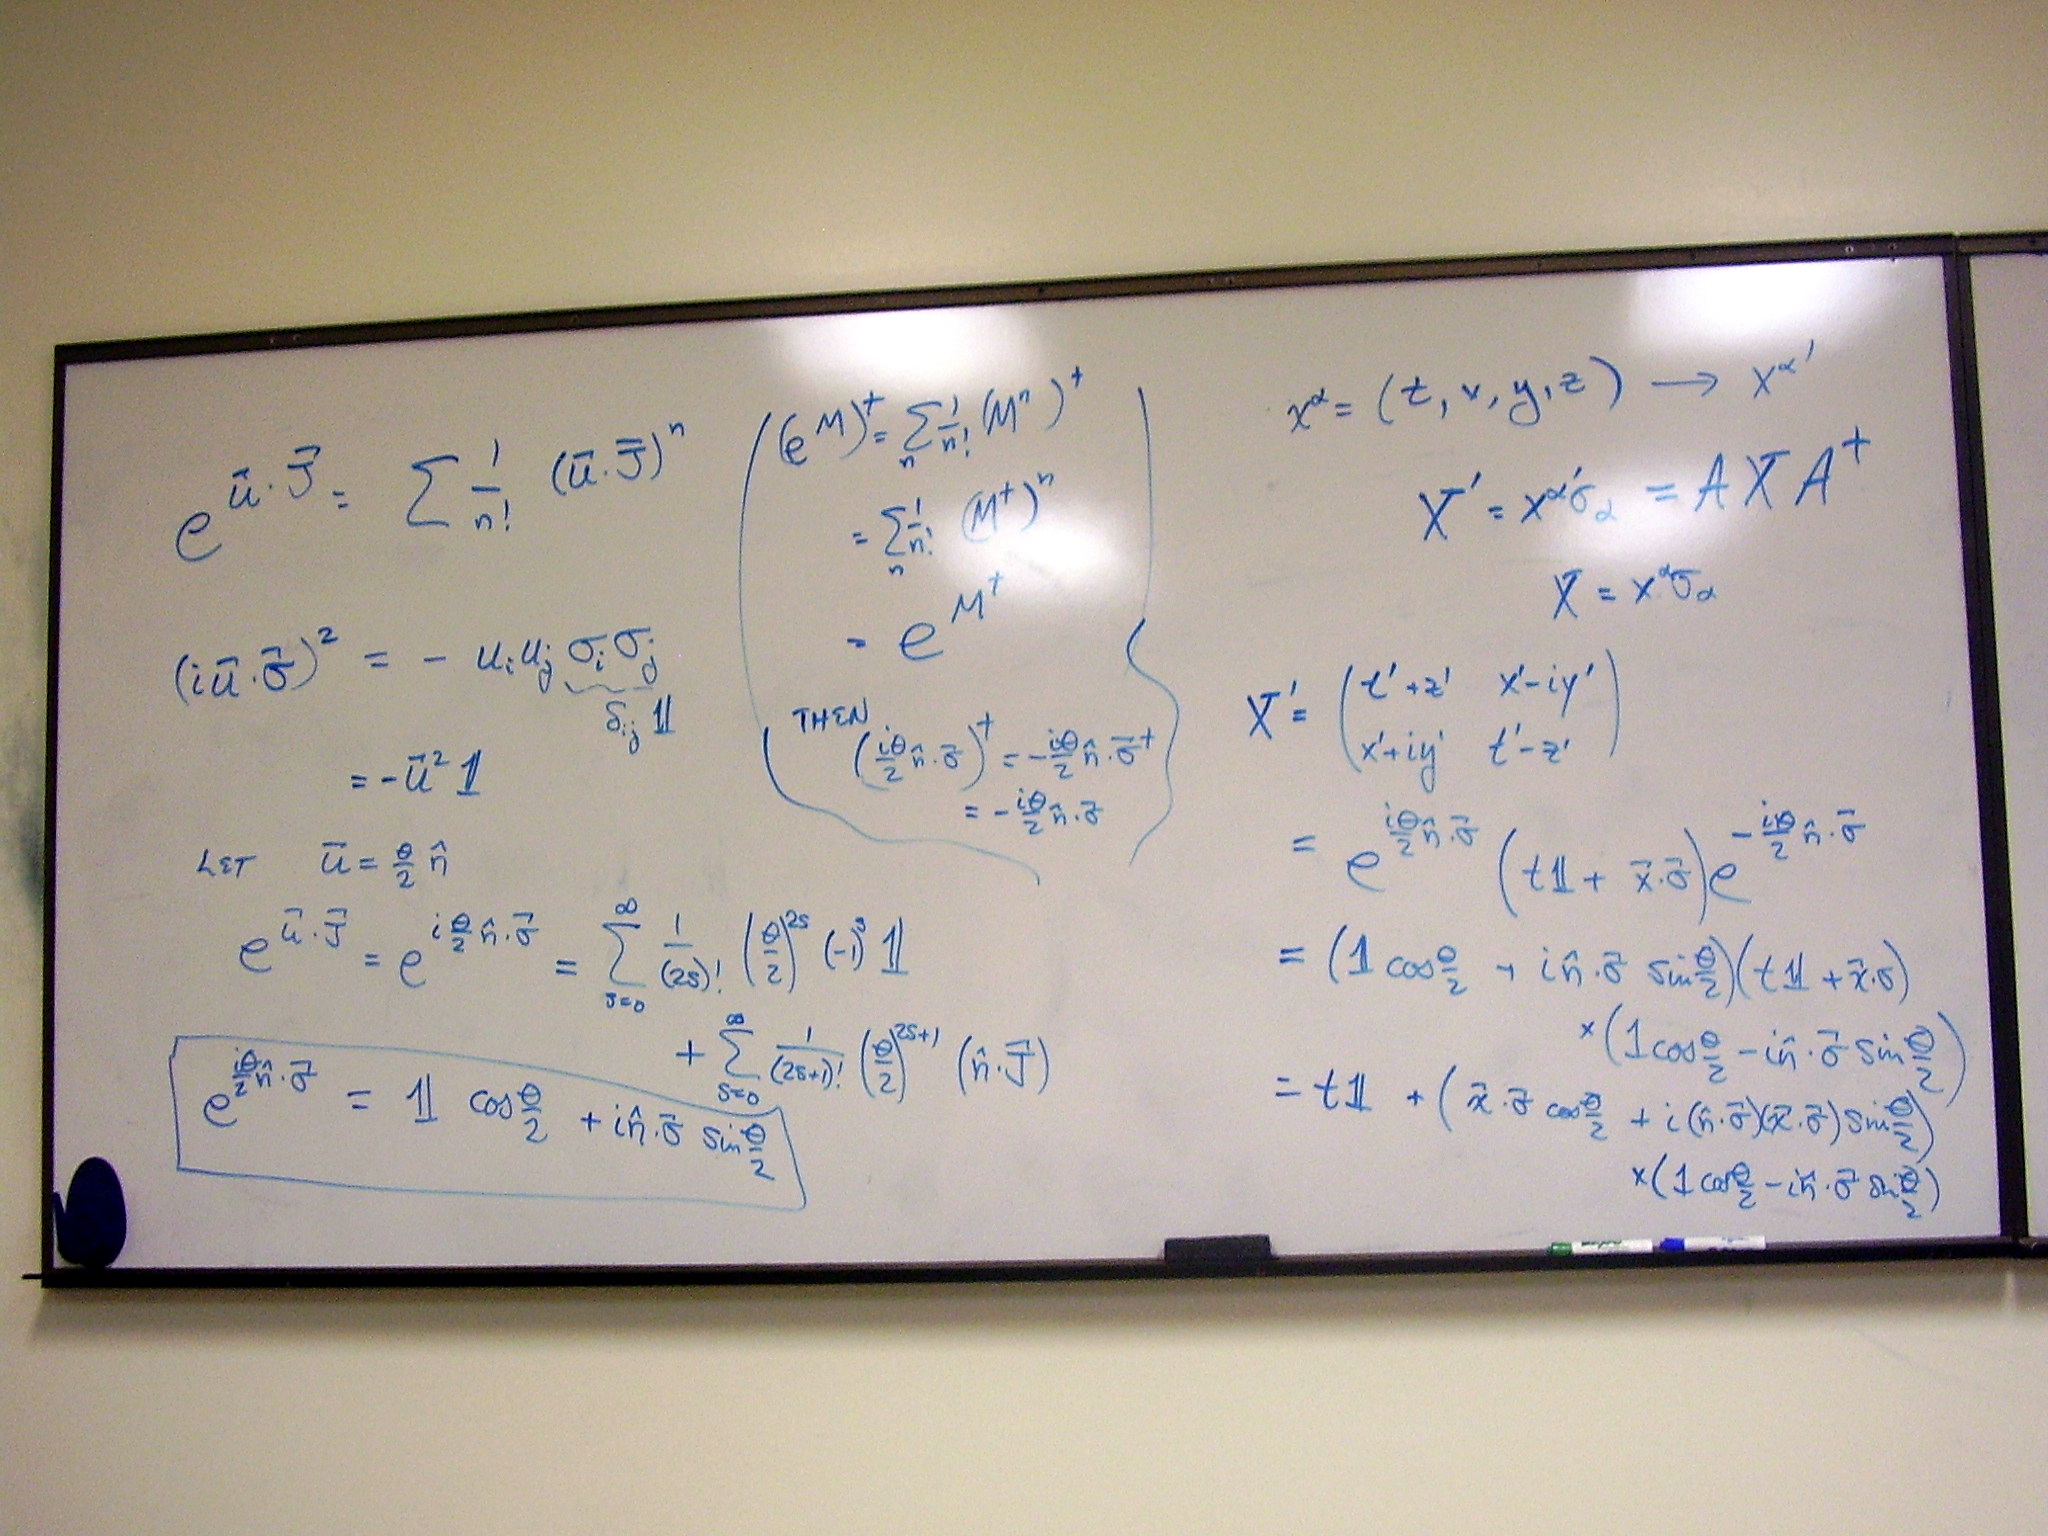 e^{ū·J⃗} = Σ 1/n! (ū·J⃗)^n
(iū·σ⃗)² = - u_i u_j σ_i σ_j
δ_ij 𝟙
= -ū² 𝟙
LET ū = θ/2 n̂
e^{ū·J⃗} = e^{i θ/2 n̂·σ⃗} = Σ_{s=0}^∞ 1/(2s)! (θ/2)^{2s} (-1)^s 𝟙
+ Σ_{s=0}^∞ 1/(2s+1)! (θ/2)^{2s+1} (n̂·J⃗)
e^{iθ/2 n̂·σ⃗} = 𝟙 cos θ/2 + i n̂·σ⃗ sin θ/2
(e^M)^† = Σ_n 1/n! (M^n)^†
= Σ_n 1/n! (M^†)^n
= e^{M^†}
THEN
(iθ/2 n̂·σ⃗)^† = - iθ/2 n̂·σ⃗^†
= - iθ/2 n̂·σ⃗
x^α = (t, x, y, z) → x^α'
X' = x^α' σ_α = A X A^†
X = x^α σ_α
X' = (t'+z' x'-iy'
x'+iy' t'-z')
= e^{iθ/2 n̂·σ⃗} (t𝟙 + x⃗·σ⃗) e^{-iθ/2 n̂·σ⃗}
= (𝟙 cos θ/2 + i n̂·σ⃗ sin θ/2)(t𝟙 + x⃗·σ)
×(𝟙 cos θ/2 - i n̂·σ⃗ sin θ/2)
= t𝟙 + (x⃗·σ⃗ cos θ/2 + i(n̂·σ⃗)(x⃗·σ⃗) sin θ/2)
×(𝟙 cos θ/2 - i n̂·σ⃗ sin θ/2)